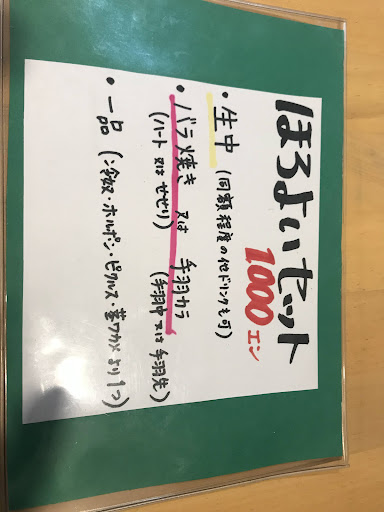 ほろよいセット
1000エン
・生中(同額程度の他ドリンクも可)
・バラ焼き 又は 手羽カラ
(ハート又はせせり) (手羽中又は手羽先)
・一品(冷奴・ホルポン・ピクルス・茎ワカメより1つ)